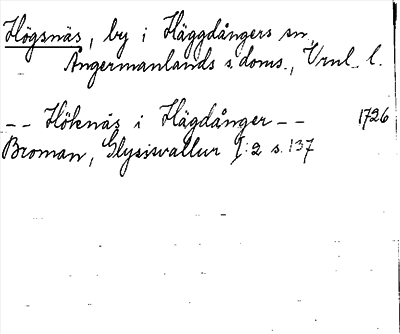 Högsnäs, by i Häggdångers sn,
Ångermanlands s. doms., Vrnl. l.
-- Höknäs i Hägdånger -- 1726
Broman, Glysisvallur I:2 s. 137